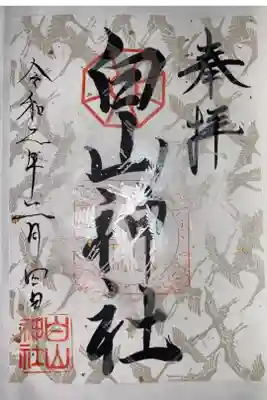 奉拝
白山神社
令和二年十二月四日
白山
神社